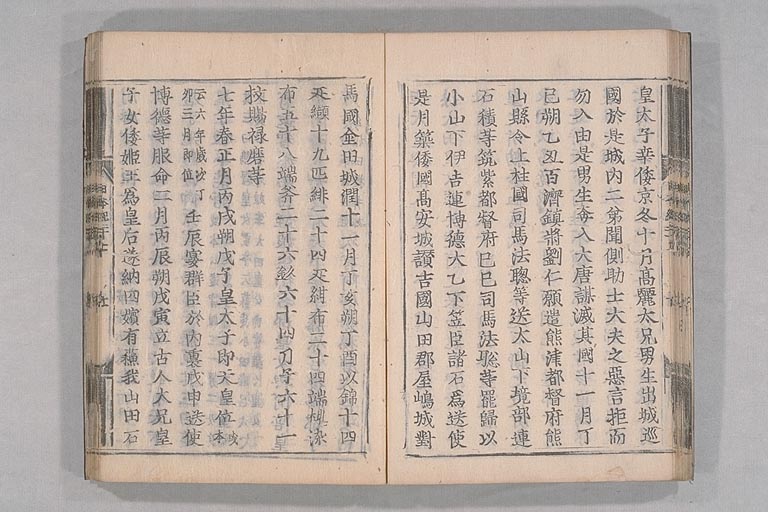 皇太子幸倭京冬十月高麗太兄男生出城巡
國於是城內二第聞側助士大夫之惡言拒而
勿入由是男生奔入大唐謀滅其國十一月丁
巳朔乙丑百濟鎭將劉仁願遣熊津都督府熊
山縣令上柱國司馬法聰等送大山下境部連
石積等筑紫都督府己巳司馬法聡等罷歸以
小山下伊吉連博德大乙下笠臣諸石爲送使
是月築倭國髙安城讃吉國山田郡屋嶋城對
馬國金田城潤十一月丁亥朔丁酉以錦十四
疋纈十九匹緋二十四疋紺布二十四端桃染
布五十八端斧二十六釤六十四刀子六十一
枚賜禄磨等
七年春正月丙戌朔戊子皇太子即天皇位
或本
云六年歲次丁
卯三月即位
壬辰宴群臣於內裏戊申送使
博德等服命二月丙辰朔戊寅立古人大兄皇
子女倭姬王爲皇后遂納四嬪有蘇我山田石